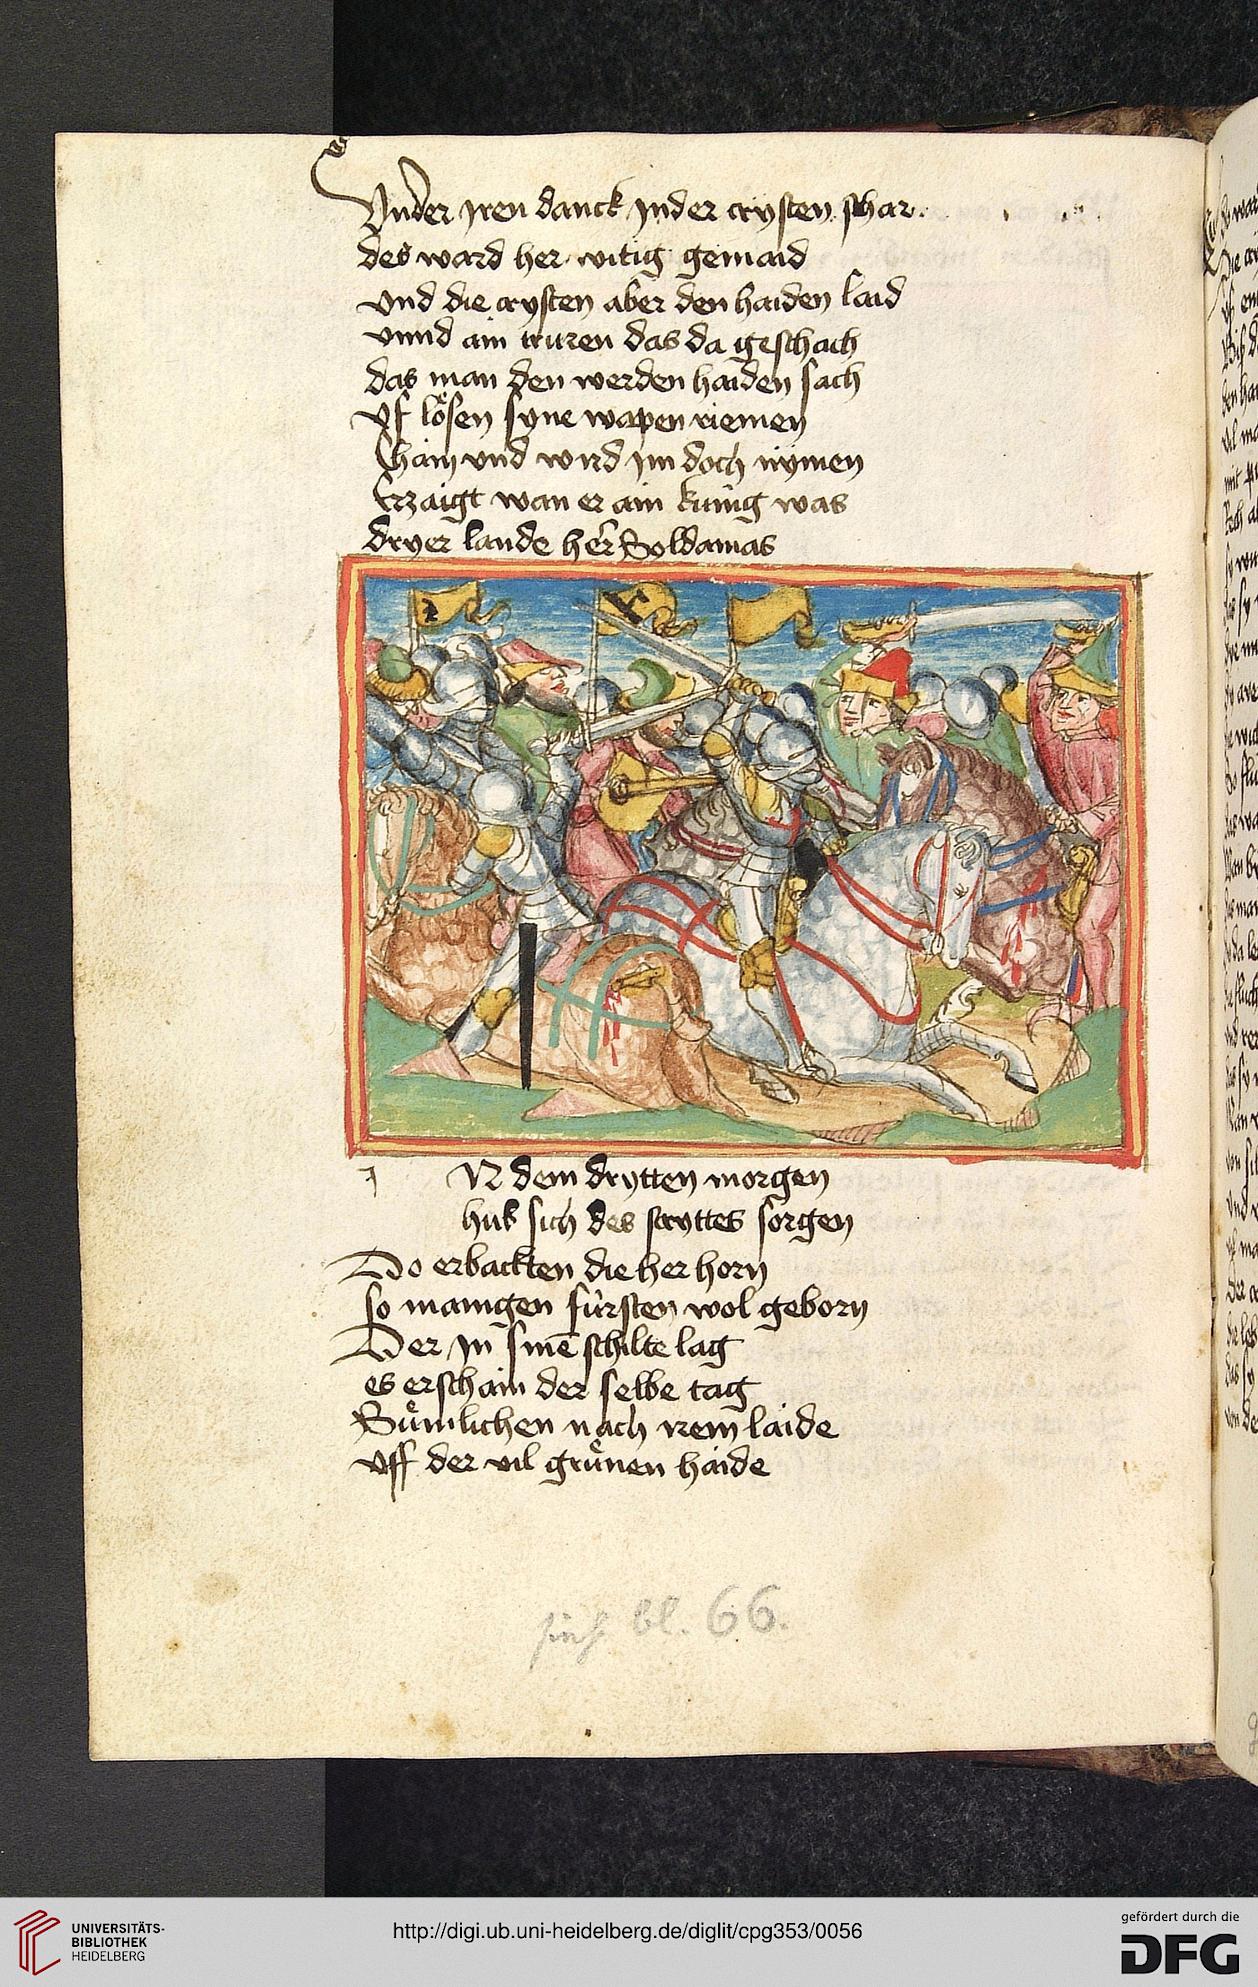 Vnder iren danck in der crysten schar
des ward her witig gemaid
vnd die crysten aber den haiden laid
vnnd ain truren das da geschach
das man den werden haiden sach
Vf lösen syne wapen riemen
Cham vnd wird im doch nÿmen
Erzaigt wan er ain kunig was
dryer lande her Soldamas
i N dem drytten morgen
hub sich des stryttes sorgen
Do erbackten die her horn
so manigen fürsten wol geborn
Der in sinē schilte lag
es erschain der selbe tag
nach irem laide
vff der vil grünen haide
bl. 66.
UNIVERSITÄTS-
BIBLIOTHEK
HEIDELBERG
http://digi.ub.uni-heidelberg.de/diglit/cpg353/0056
gefördert durch die
DFG